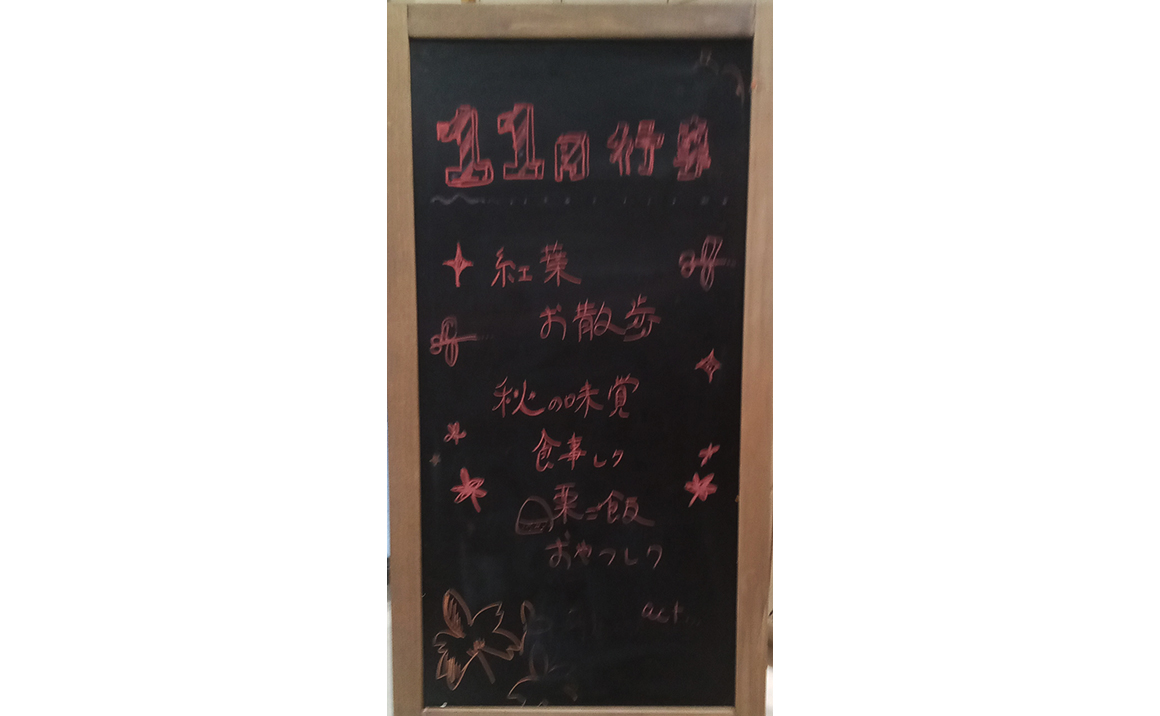 11月行事
紅葉
お散歩
秋の味覚
食事レク
栗ご飯
おやつレク
act...